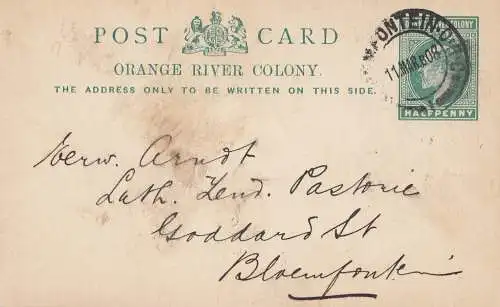 POST CARD
ORANGE RIVER COLONY.
THE ADDRESS ONLY TO BE WRITTEN ON THIS SIDE.
COLONY
11 MAR 08
HALFPENNY
Eerw. Arndt
Luth. Zend. Pastorie
Goddard St
Bloemfontein